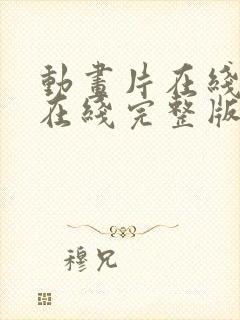 動畫片在綫
在綫完整版
穆兄